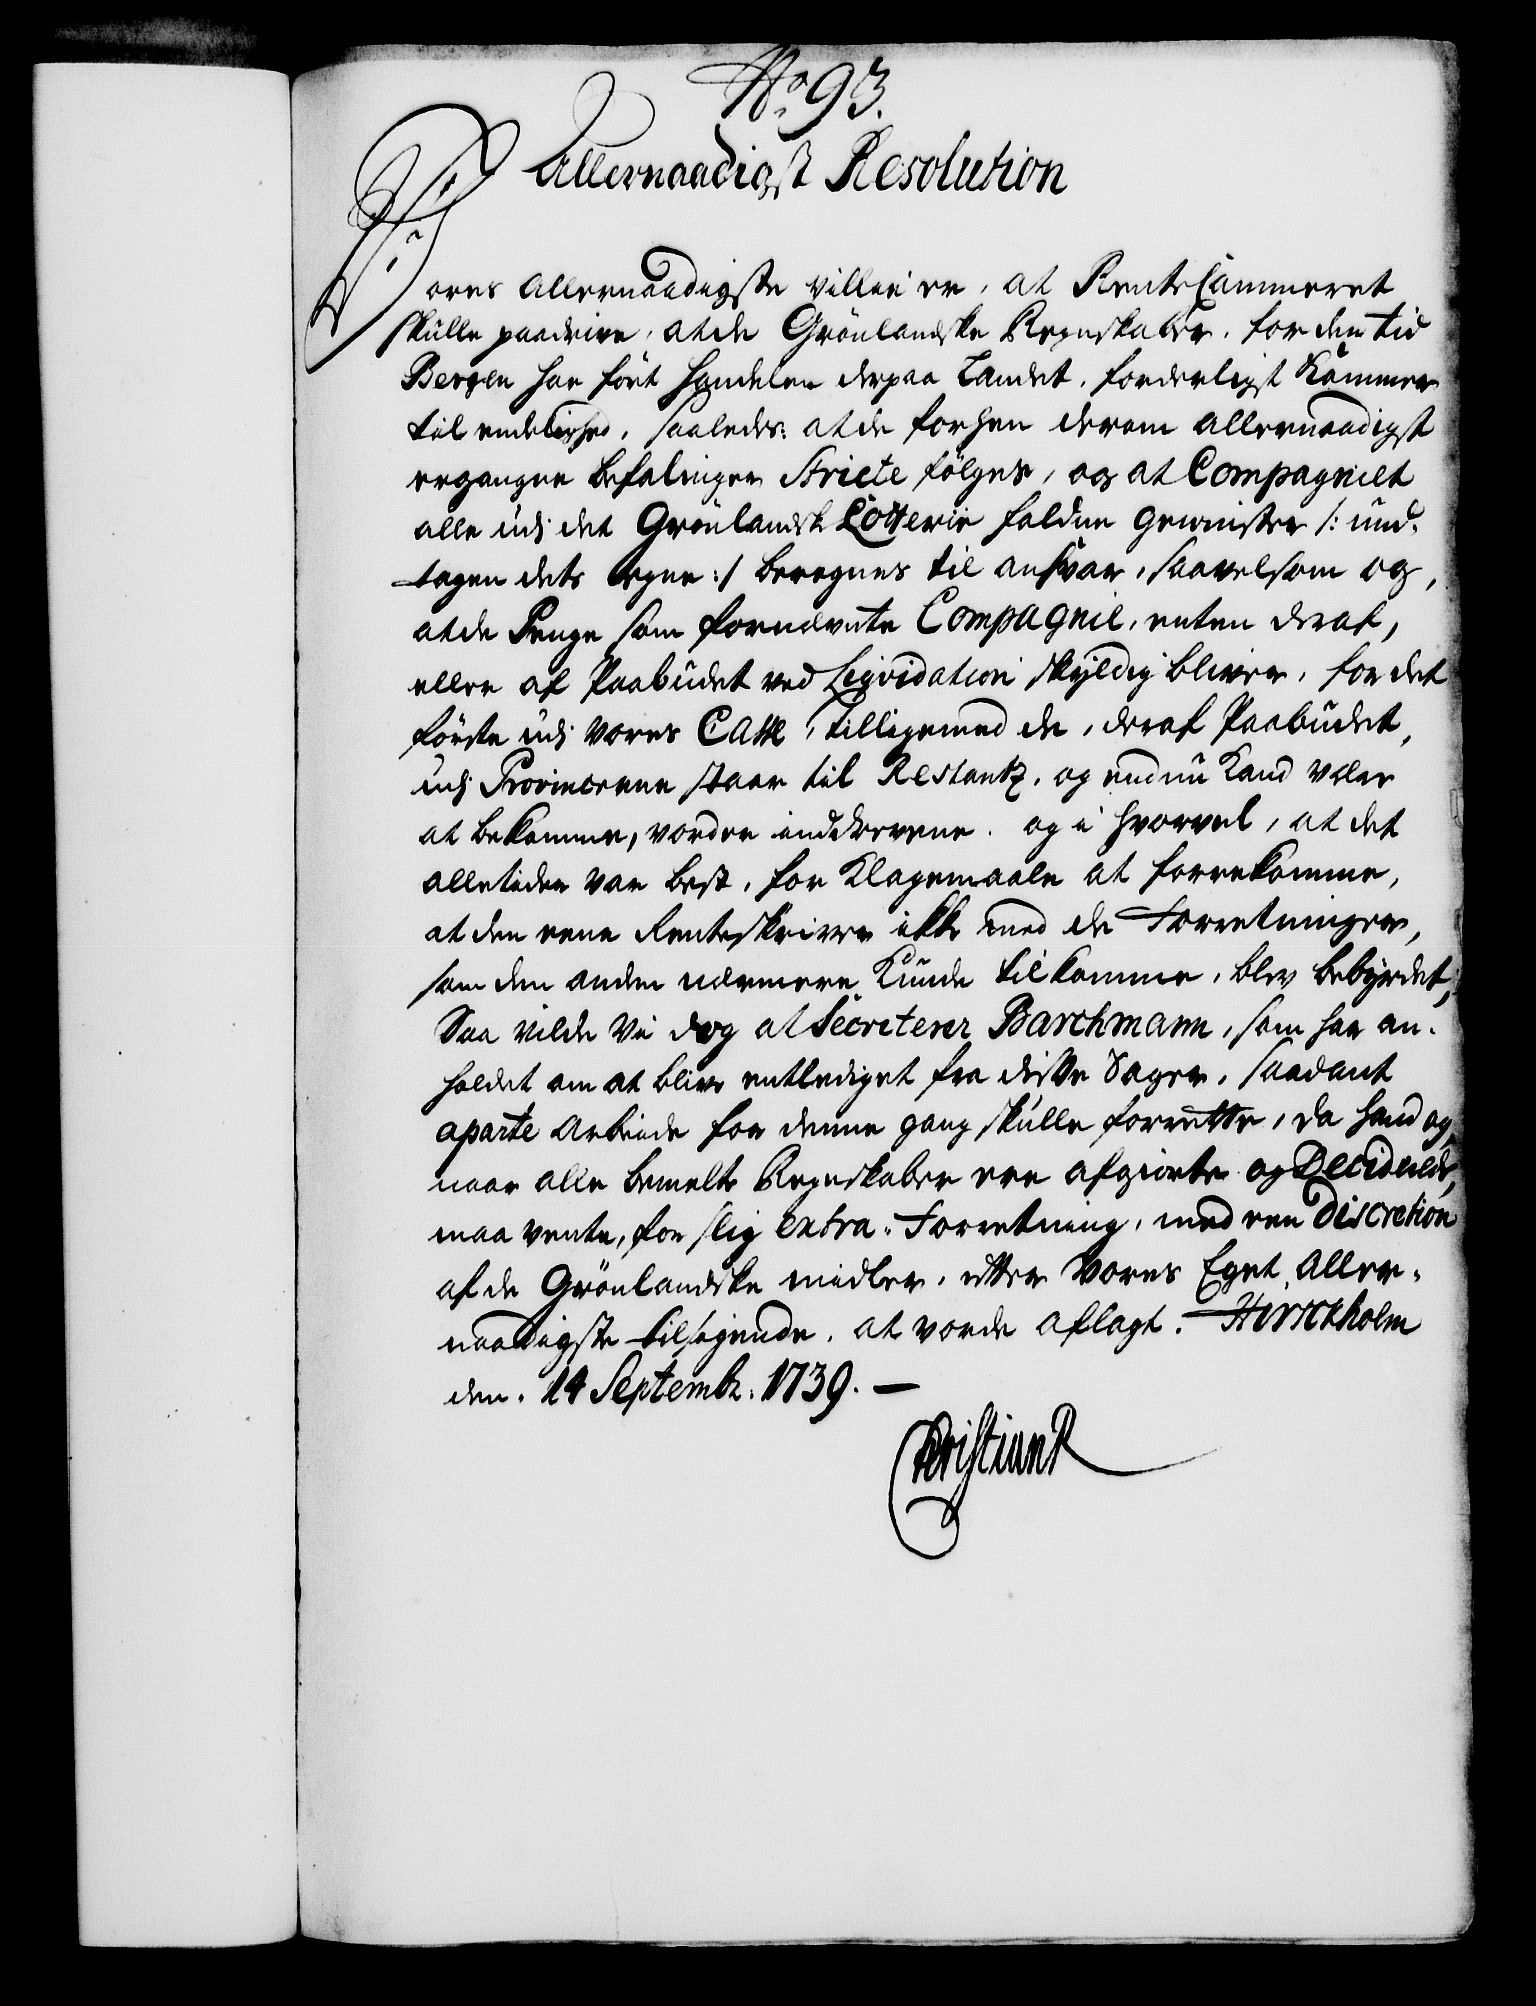 No 93.
Allernaadigst Resolution
Vores allernaadigste villie er, at RenteCammeret
skulle paadrive, at de Grönlandske Regnskaber, for den tid
Bergen har fört Handelen derpaa Landet, forderligst kommer
til endelighed, saaledes at de forhen derom allernaadigst
ergangne befalinger stricte fölges, og at Compagniet
alle udj det Grönlandsk Lotterie faldne gewinster /: und-
tagen dets egne :/ beregnes til ansvar, saavelsom og,
at de Penge som fornævnte Compagnie, enten deraf,
eller af Paabudet ved Liqvidation skyldig bliver, for det
förste udj vores Casse, tilligemed de, deraf Paabudet,
udj Provincerne staar til Restantz, og endnu kand være
at bekomme, vorder inddrevene. og i hvorvel, at det
alletider var best, for Klagemaale at forrekomme,
at den eene Renteskriver ikke med de Forretninger,
som den anden nærmere kunde tilkomme, blev bebyrdet,
Saa vilde Vi dog at Secreterer Barchmann, som har an-
holdet om at blive entlediget fra disse Sager, saadant
aparte Arbeide for denne gang skulle forrette, da hand og,
naar alle bemelte Regnskaber ere afgiorte og Deciderede,
maa vente, for slig extra-Forretning, med een Discretion
af de Grönlandske midler, efter Vores Eget Aller-
naadigste tilsigende, at vorde aflagt. Hirschholm
den. 14 Septembr: 1739. —
Christian R